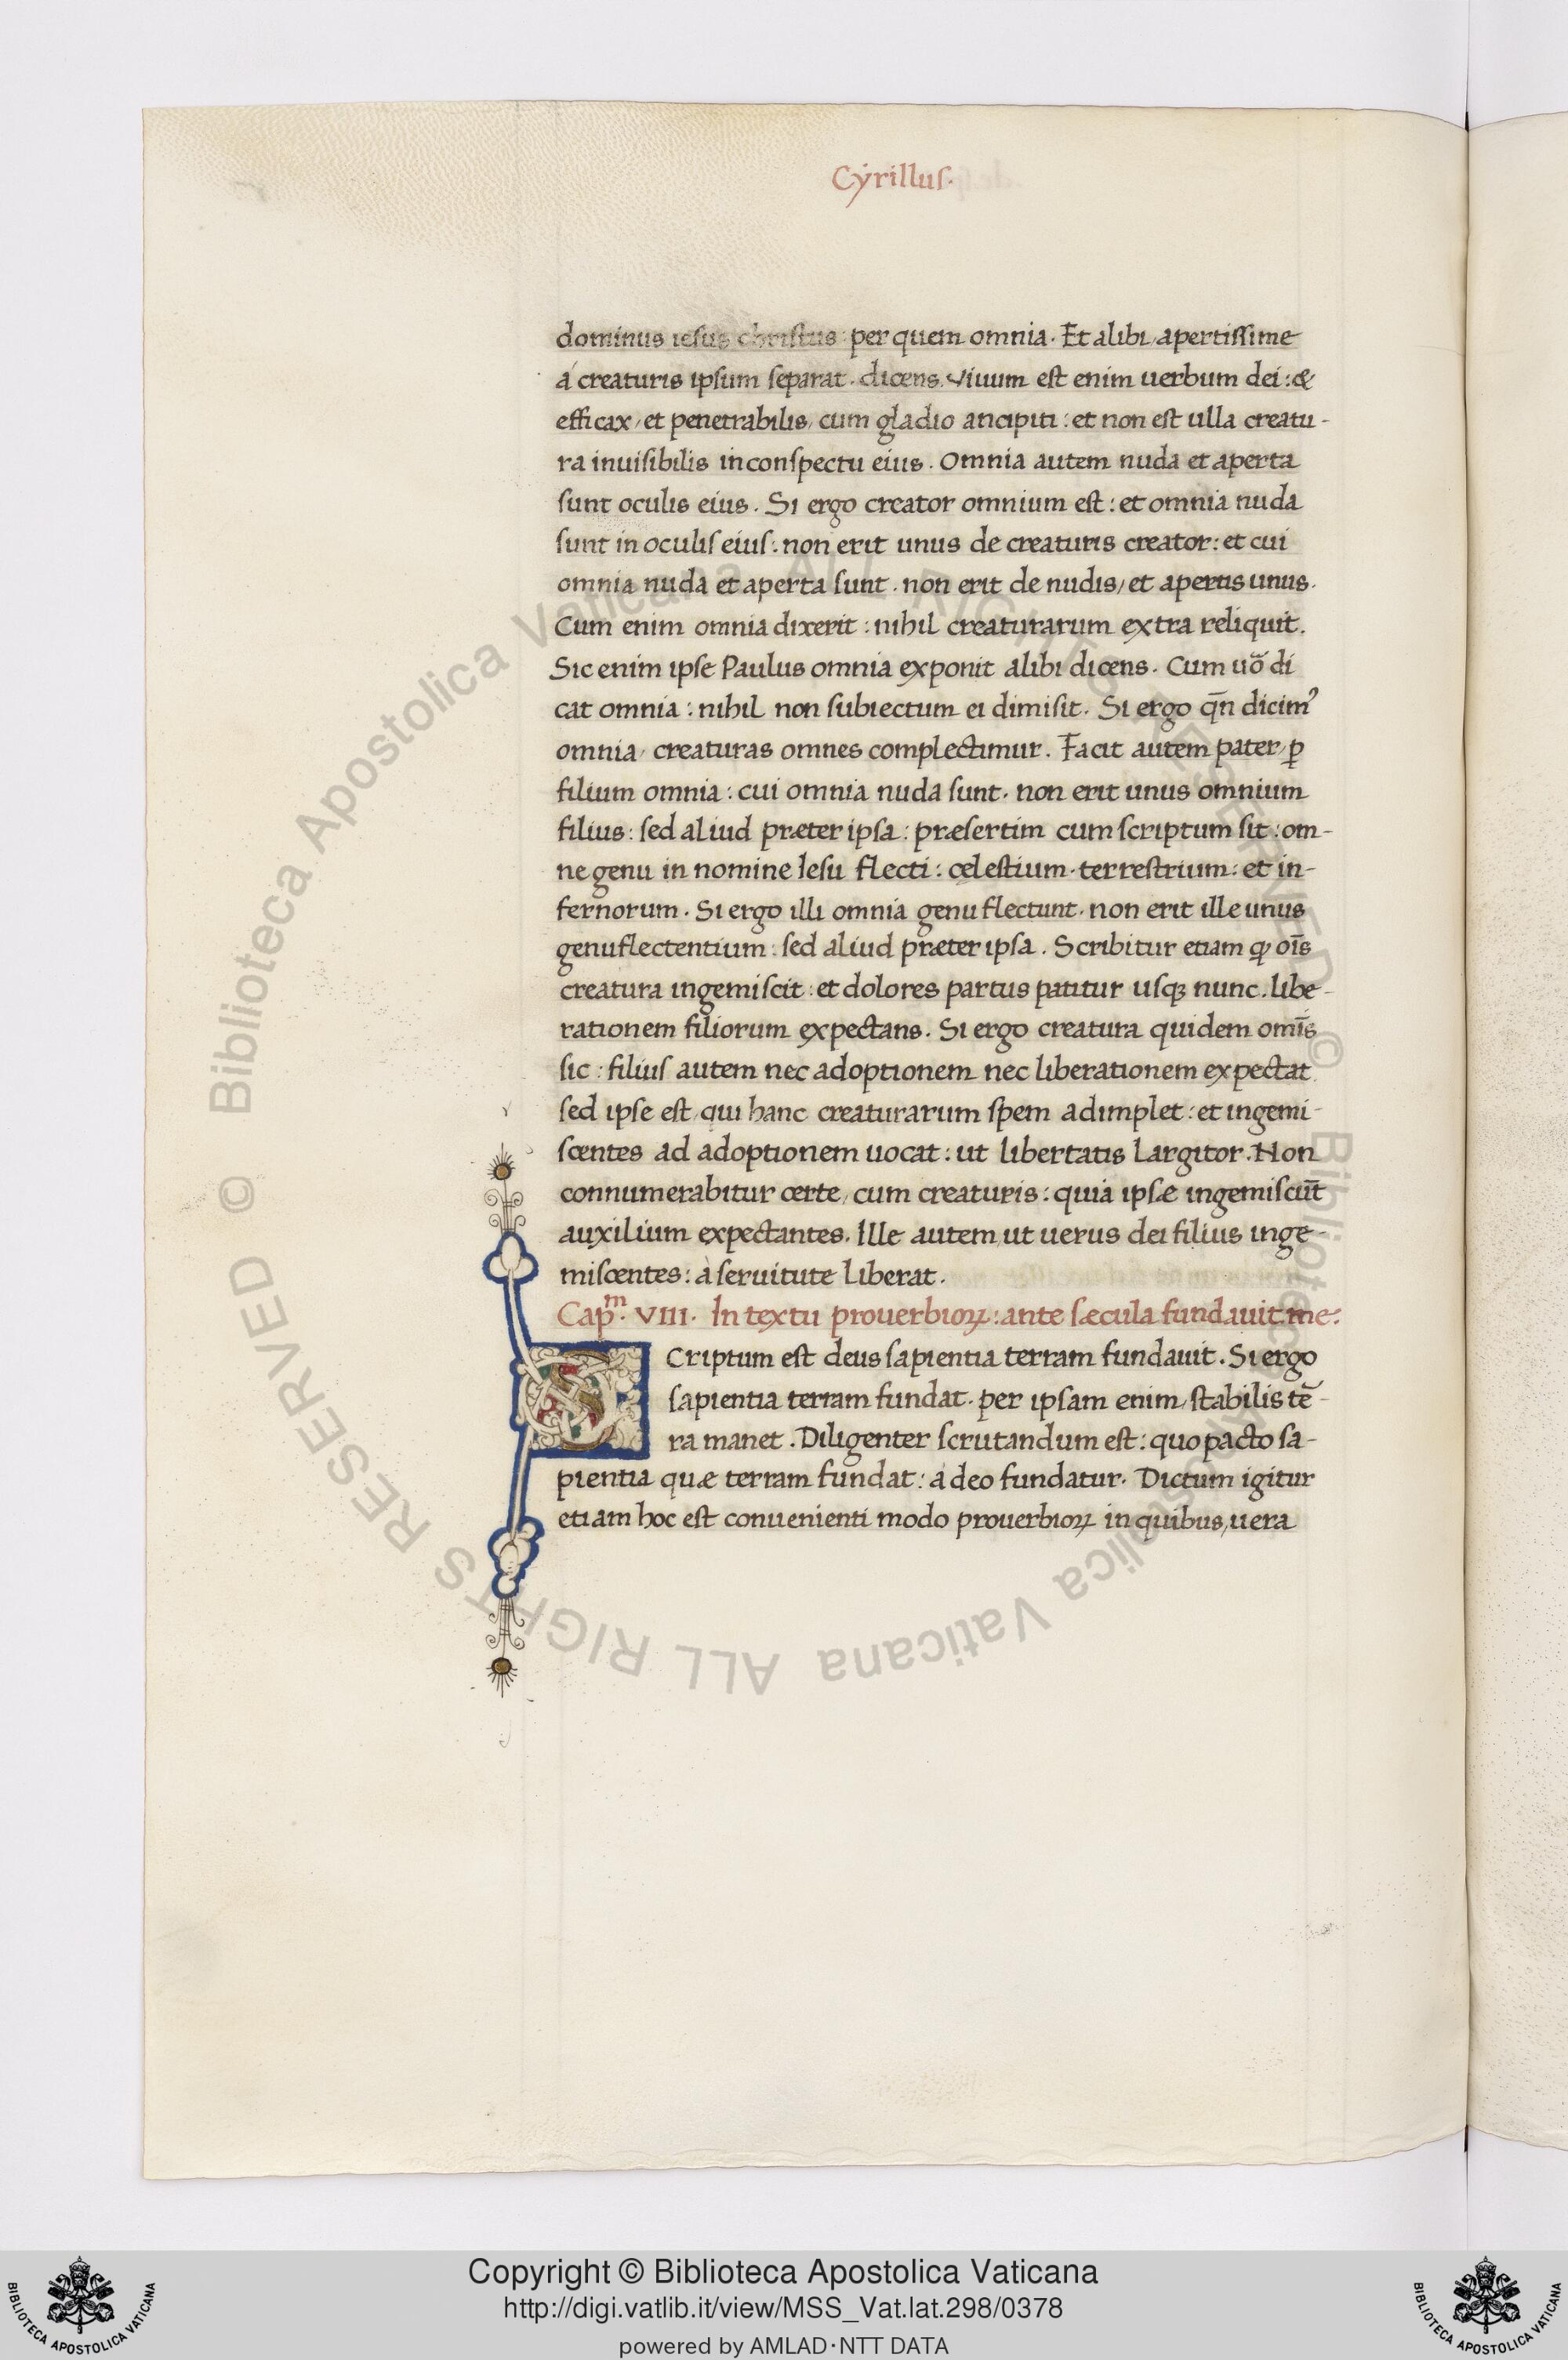 Cyrillus.
dominus iesus christus: per quem omnia. Et alibi, apertissime
á creaturis ipsum separat. dicens. Viuum est enim uerbum dei: &
efficax, et penetrabilis, cum gladio ancipiti: et non est ulla creatu-
ra inuisibilis in conspectu eius. Omnia autem nuda et aperta
sunt oculis eius. Si ergo creator omnium est: et omnia nuda
sunt in oculis eius: non erit unus de creaturis creator: et cui
omnia nuda et aperta sunt. non erit de nudis, et apertis unus.
Cum enim omnia dixerit: nihil creaturarum extra reliquit.
Sic enim ipse Paulus omnia exponit alibi dicens. Cum uõ di
cat omnia: nihil non subiectum ei dimisit. Si ergo qn̄ dicimꝰ
omnia, creaturas omnes complectimur. Facit autem pater, ꝑ
filium omnia: cui omnia nuda sunt. non erit unus omnium
filius: sed aliud præter ipsa: præsertim cum scriptum sit: om-
ne genu in nomine Iesu flecti: cęlestium. terrestrium: et in-
fernorum. Si ergo illi omnia genu flectunt. non erit ille unus
genuflectentium: sed aliud præter ipsa. Scribitur etiam ꝙ oīs
creatura ingemiscit: et dolores partus patitur usqꝫ nunc. libe-
rationem filiorum expectans. Si ergo creatura quidem omīs
sic: filius autem nec adoptionem nec liberationem expectat
sed ipse est, qui hanc creaturarum spem adimplet: et ingemi-
scentes ad adoptionem uocat: ut libertatis largitor. Non
connumerabitur certe, cum creaturis: quia ipsæ ingemiscūt
auxilium expectantes. Ille autem, ut uerus dei filius inge-
miscentes: à seruitute liberat.
Cap.ᵐ VIII. In textu prouerbioꝝ: ante sæcula fundauit me.
Scriptum est deus sapientia terram fundauit. Si ergo
sapientia terram fundat. per ipsam enim, stabilis tẽ-
ra manet. Diligenter scrutandum est: quo pacto sa-
pientia quæ terram fundat: á deo fundatur. Dictum igitur
etiam hoc est conuenienti modo prouerbioꝝ in quibus, uera
© Biblioteca Apostolica Vaticana ALL RIGHTS RESERVED © Biblioteca Apostolica Vaticana ALL RIGHTS RESERVED
Copyright © Biblioteca Apostolica Vaticana
http://digi.vatlib.it/view/MSS_Vat.lat.298/0378
powered by AMLAD·NTT DATA
BIBLIOTECA APOSTOLICA VATICANA
BIBLIOTECA APOSTOLICA VATICANA